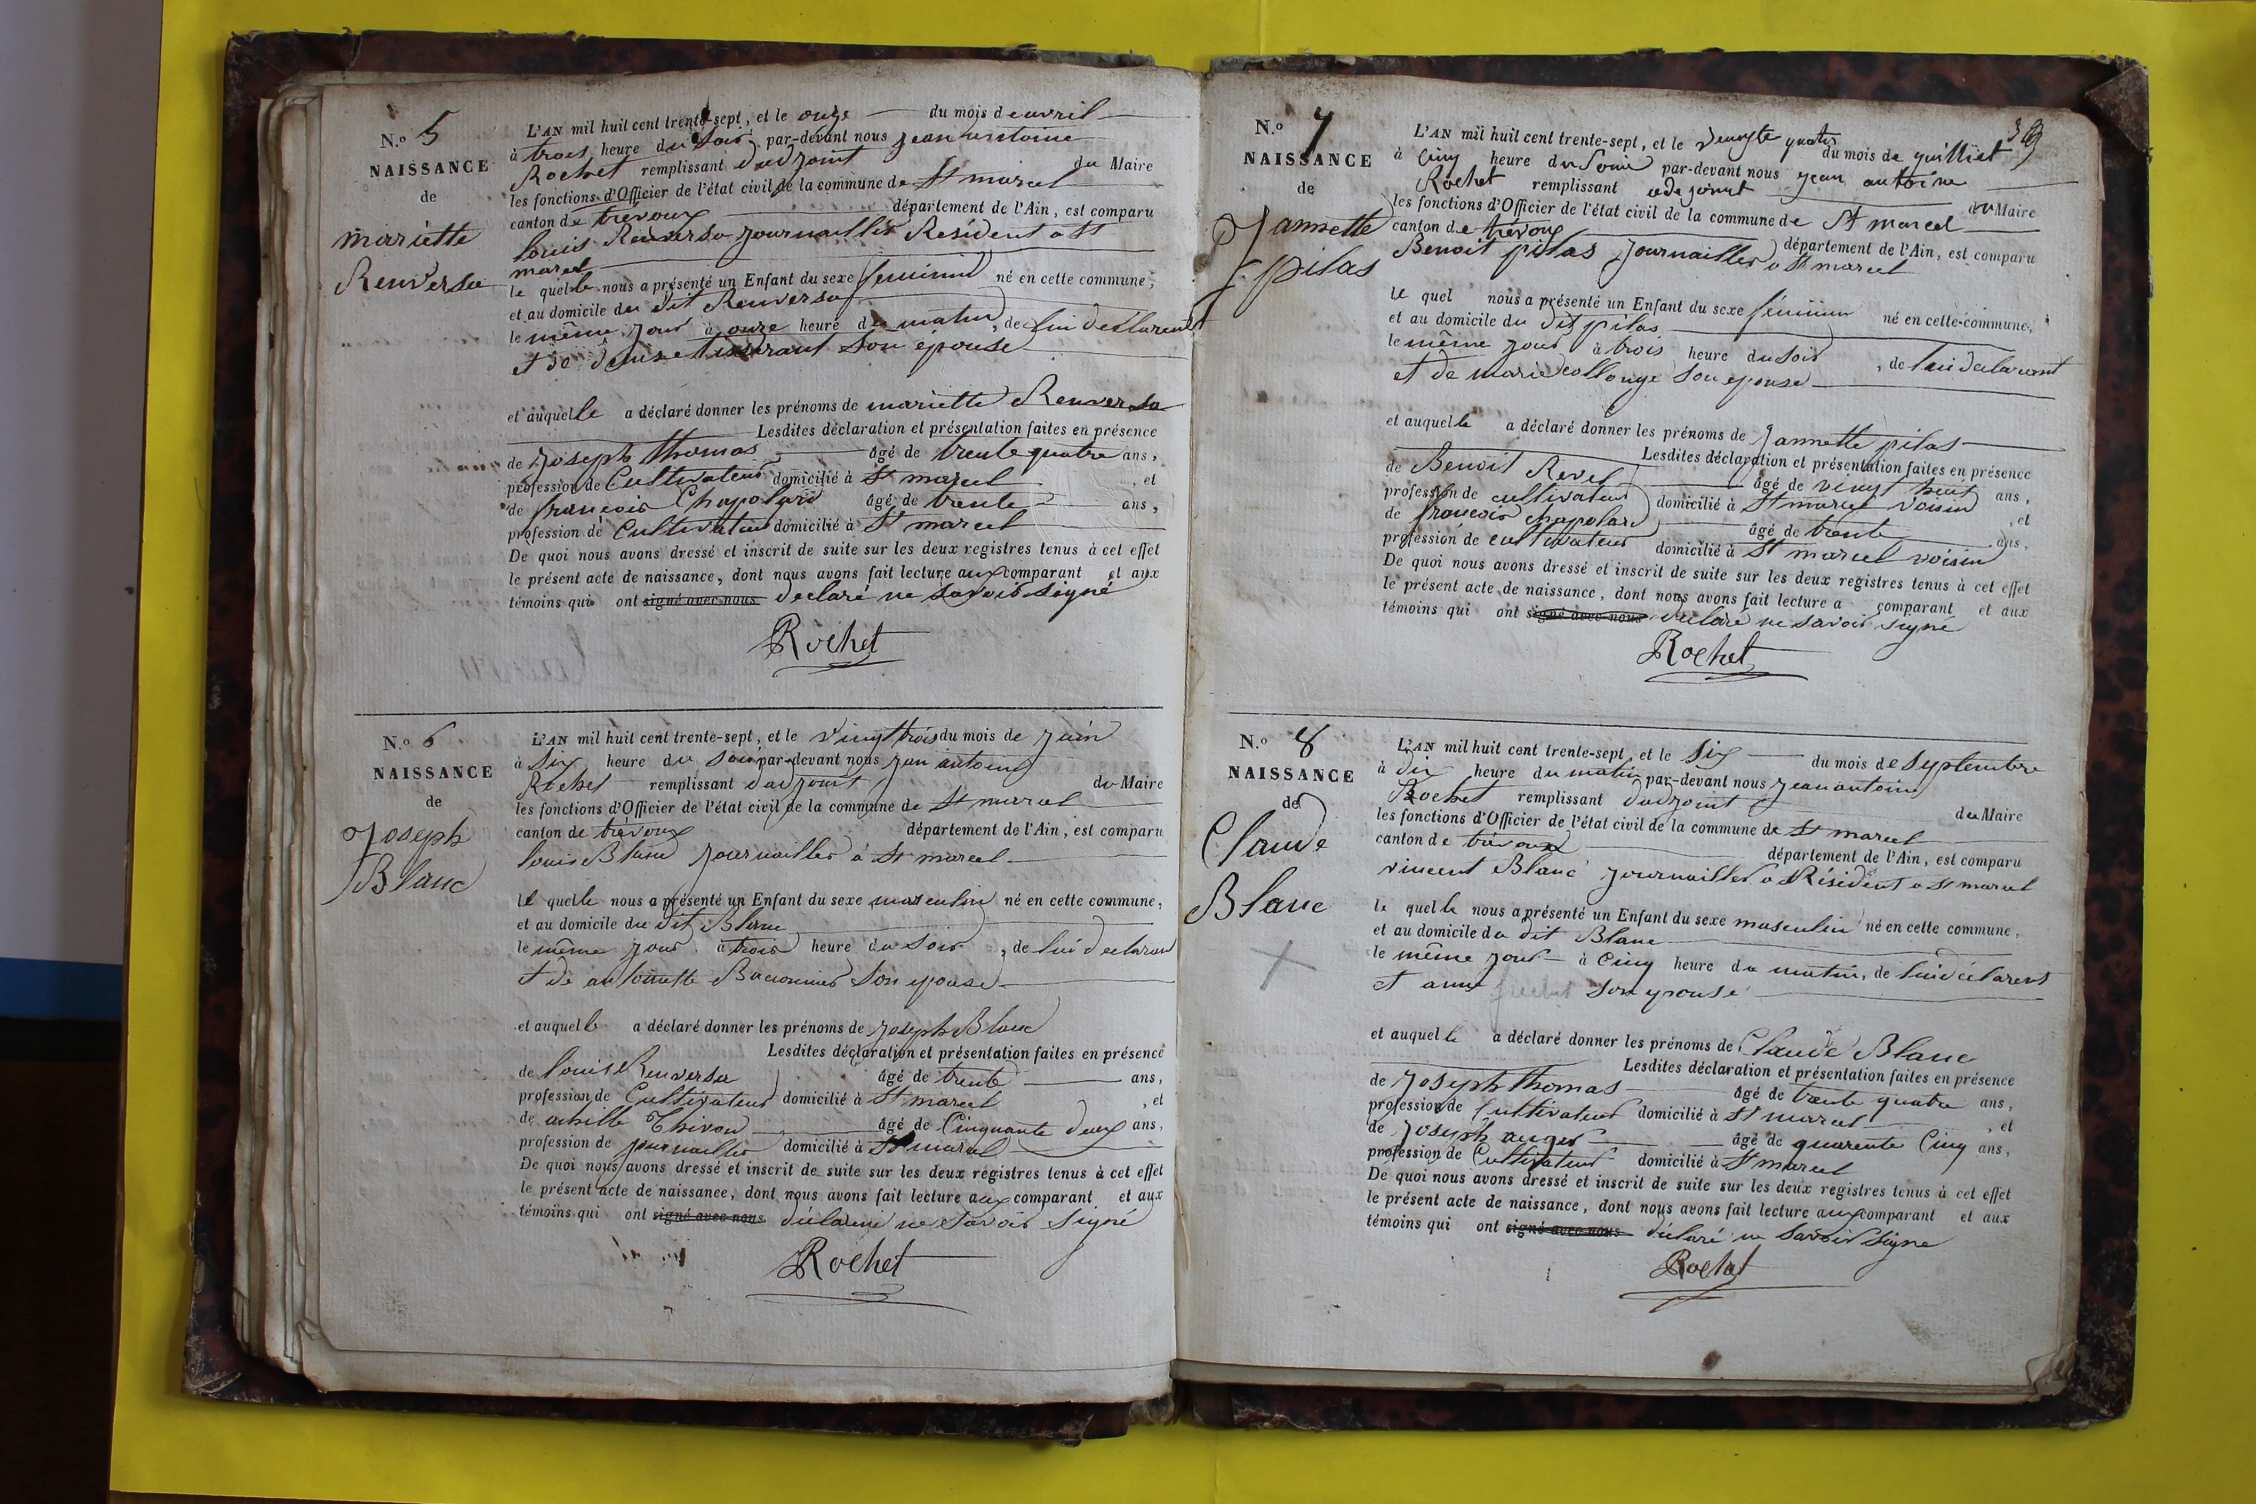 N.o 5
NAISSANCE
de
mariette
Renversa
L'AN mil huit cent trente-sept, et le onze du mois de avril
à trois heure du soir par-devant nous jean antoine
Rochet remplissant d'adjoint du Maire
les fonctions d'Officier de l'état civil de la commune de St marcel
canton de trévoux département de l'Ain, est comparu
louis Renversa journailler Resident a St
marcel
le quel le nous a présenté un Enfant du sexe feminin né en cette commune,
et au domicile du dit Renversa
le même jour à onze heure du matin, de lui déclarent
et de denise tisserant son epouse
et auquel le a déclaré donner les prénoms de mariette Renversa
Lesdites déclaration et présentation faites en présence
de joseph thomas âgé de trente quatre ans,
profession de Cultivateur domicilié à St marcel, et
de françois Chapolard âgé de trente ans,
profession de Cultivateur domicilié à St marcel
De quoi nous avons dressé et inscrit de suite sur les deux registres tenus à cet effet
le présent acte de naissance, dont nous avons fait lecture aux comparant et aux
témoins qui ont signé avec nous declaré ne savoir signé
Rochet
N.o 6
NAISSANCE
de
joseph
Blanc
L'AN mil huit cent trente-sept, et le vingt trois du mois de juin
à six heure du soir par-devant nous jean antoine
Rochet remplissant d'adjoint du Maire
les fonctions d'Officier de l'état civil de la commune de St marcel
canton de trévoux département de l'Ain, est comparu
louis Blanc journailler à St marcel
le quel le nous a présenté un Enfant du sexe masculin né en cette commune,
et au domicile du dit Blanc
le même jour à trois heure du soir, de lui declarant
et de antoinette son epouse
et auquel le a déclaré donner les prénoms de joseph Blanc
Lesdites déclaration et présentation faites en présence
de louis Renversa âgé de trente ans,
profession de Cultivateur domicilié à St marcel, et
de achille Thivon âgé de Cinquante deux ans,
profession de journailler domicilié à St marcel
De quoi nous avons dressé et inscrit de suite sur les deux registres tenus à cet effet
le présent acte de naissance, dont nous avons fait lecture aux comparant et aux
témoins qui ont signé avec nous déclaré ne savoir signé
Rochet
N.o 7
NAISSANCE
de
Jannette
pilas
L'AN mil huit cent trente-sept, et le vingte quatre du mois de quilliet
à Cinq heure du Soir par-devant nous jean antoine
Rochet remplissant adejoint du Maire
les fonctions d'Officier de l'état civil de la commune de St marcel
canton de trévoux département de l'Ain, est comparu
Benoit pilas journailler a St marcel
le quel nous a présenté un Enfant du sexe féminin né en cette commune,
et au domicile du dit pilas
le même jour à trois heure du soir, de lui declarent
et de marie collonge son epouse
et auquel le a déclaré donner les prénoms de Jannette pilas
Lesdites déclaration et présentation faites en présence
de Benoit Revel âgé de vingt huit ans,
profession de cultivateur domicilié à St marcel voisin, et
de françois chapolard âgé de trente ans,
profession de cultivateur domicilié à St marcel voisin
De quoi nous avons dressé et inscrit de suite sur les deux registres tenus à cet effet
le présent acte de naissance, dont nous avons fait lecture a comparant et aux
témoins qui ont signé avec nous déclaré ne savoir signé
Rochet
N.o 8
NAISSANCE
de
Claude
Blanc
L'AN mil huit cent trente-sept, et le six du mois de septembre
à dix heure du matin par-devant nous jean antoine
Rochet remplissant d'adjoint du Maire
les fonctions d'Officier de l'état civil de la commune de St marcel
canton de trévoux département de l'Ain, est comparu
vincent Blanc journailler a Résident a St marcel
le quel le nous a présenté un Enfant du sexe masculin né en cette commune,
et au domicile du dit Blanc
le même jour à Cinq heure du matin, de lui déclarent
et anne son epouse
et auquel le a déclaré donner les prénoms de Claude Blanc
Lesdites déclaration et présentation faites en présence
de joseph thomas âgé de trente quatre ans,
profession de Cultivateur domicilié à St marcel, et
de joseph auger âgé de quarente Cinq ans,
profession de Cultivateur domicilié à St marcel
De quoi nous avons dressé et inscrit de suite sur les deux registres tenus à cet effet
le présent acte de naissance, dont nous avons fait lecture aux comparant et aux
témoins qui ont signé avec nous déclaré ne savoir signe
Rochet